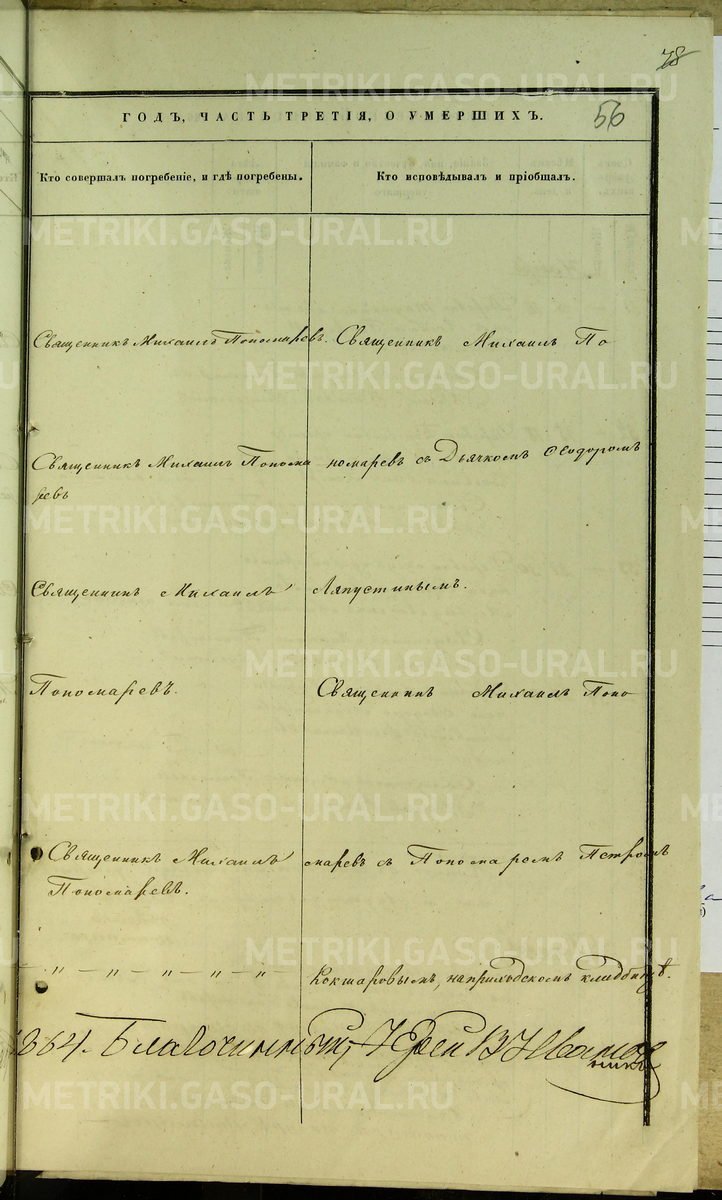 78
56
ГОДЪ, ЧАСТЬ ТРЕТІЯ, О УМЕРШИХЪ.
Кто совершалъ погребеніе, и гдѣ погребены.
Кто исповѣдывалъ и пріобщалъ.
Священникъ Михаилъ Пономаревъ.
Священникъ Михаилъ По
Священникъ Михаилъ Понома
ревъ
номаревъ съ Дьячкомъ Ѳеодоромъ
Священникъ Михаилъ
Ляпустинымъ.
Пономаревъ.
Священникъ Михаилъ Поно
Священникъ Михаилъ
Пономаревъ.
маревъ съ Пономаромъ Петромъ
— " — " — " — " — "
Кокшаровымъ, на приходскомъ кладбищѣ.
1864. Благочинный, Іерей В
METRIKI.GASO-URAL.RU